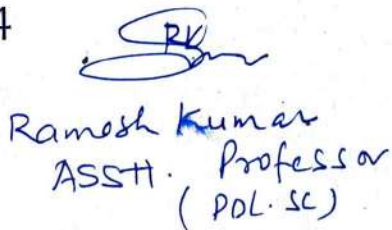 4
RK
Ramesh Kumar
ASStt. Professor
(POL. SC)